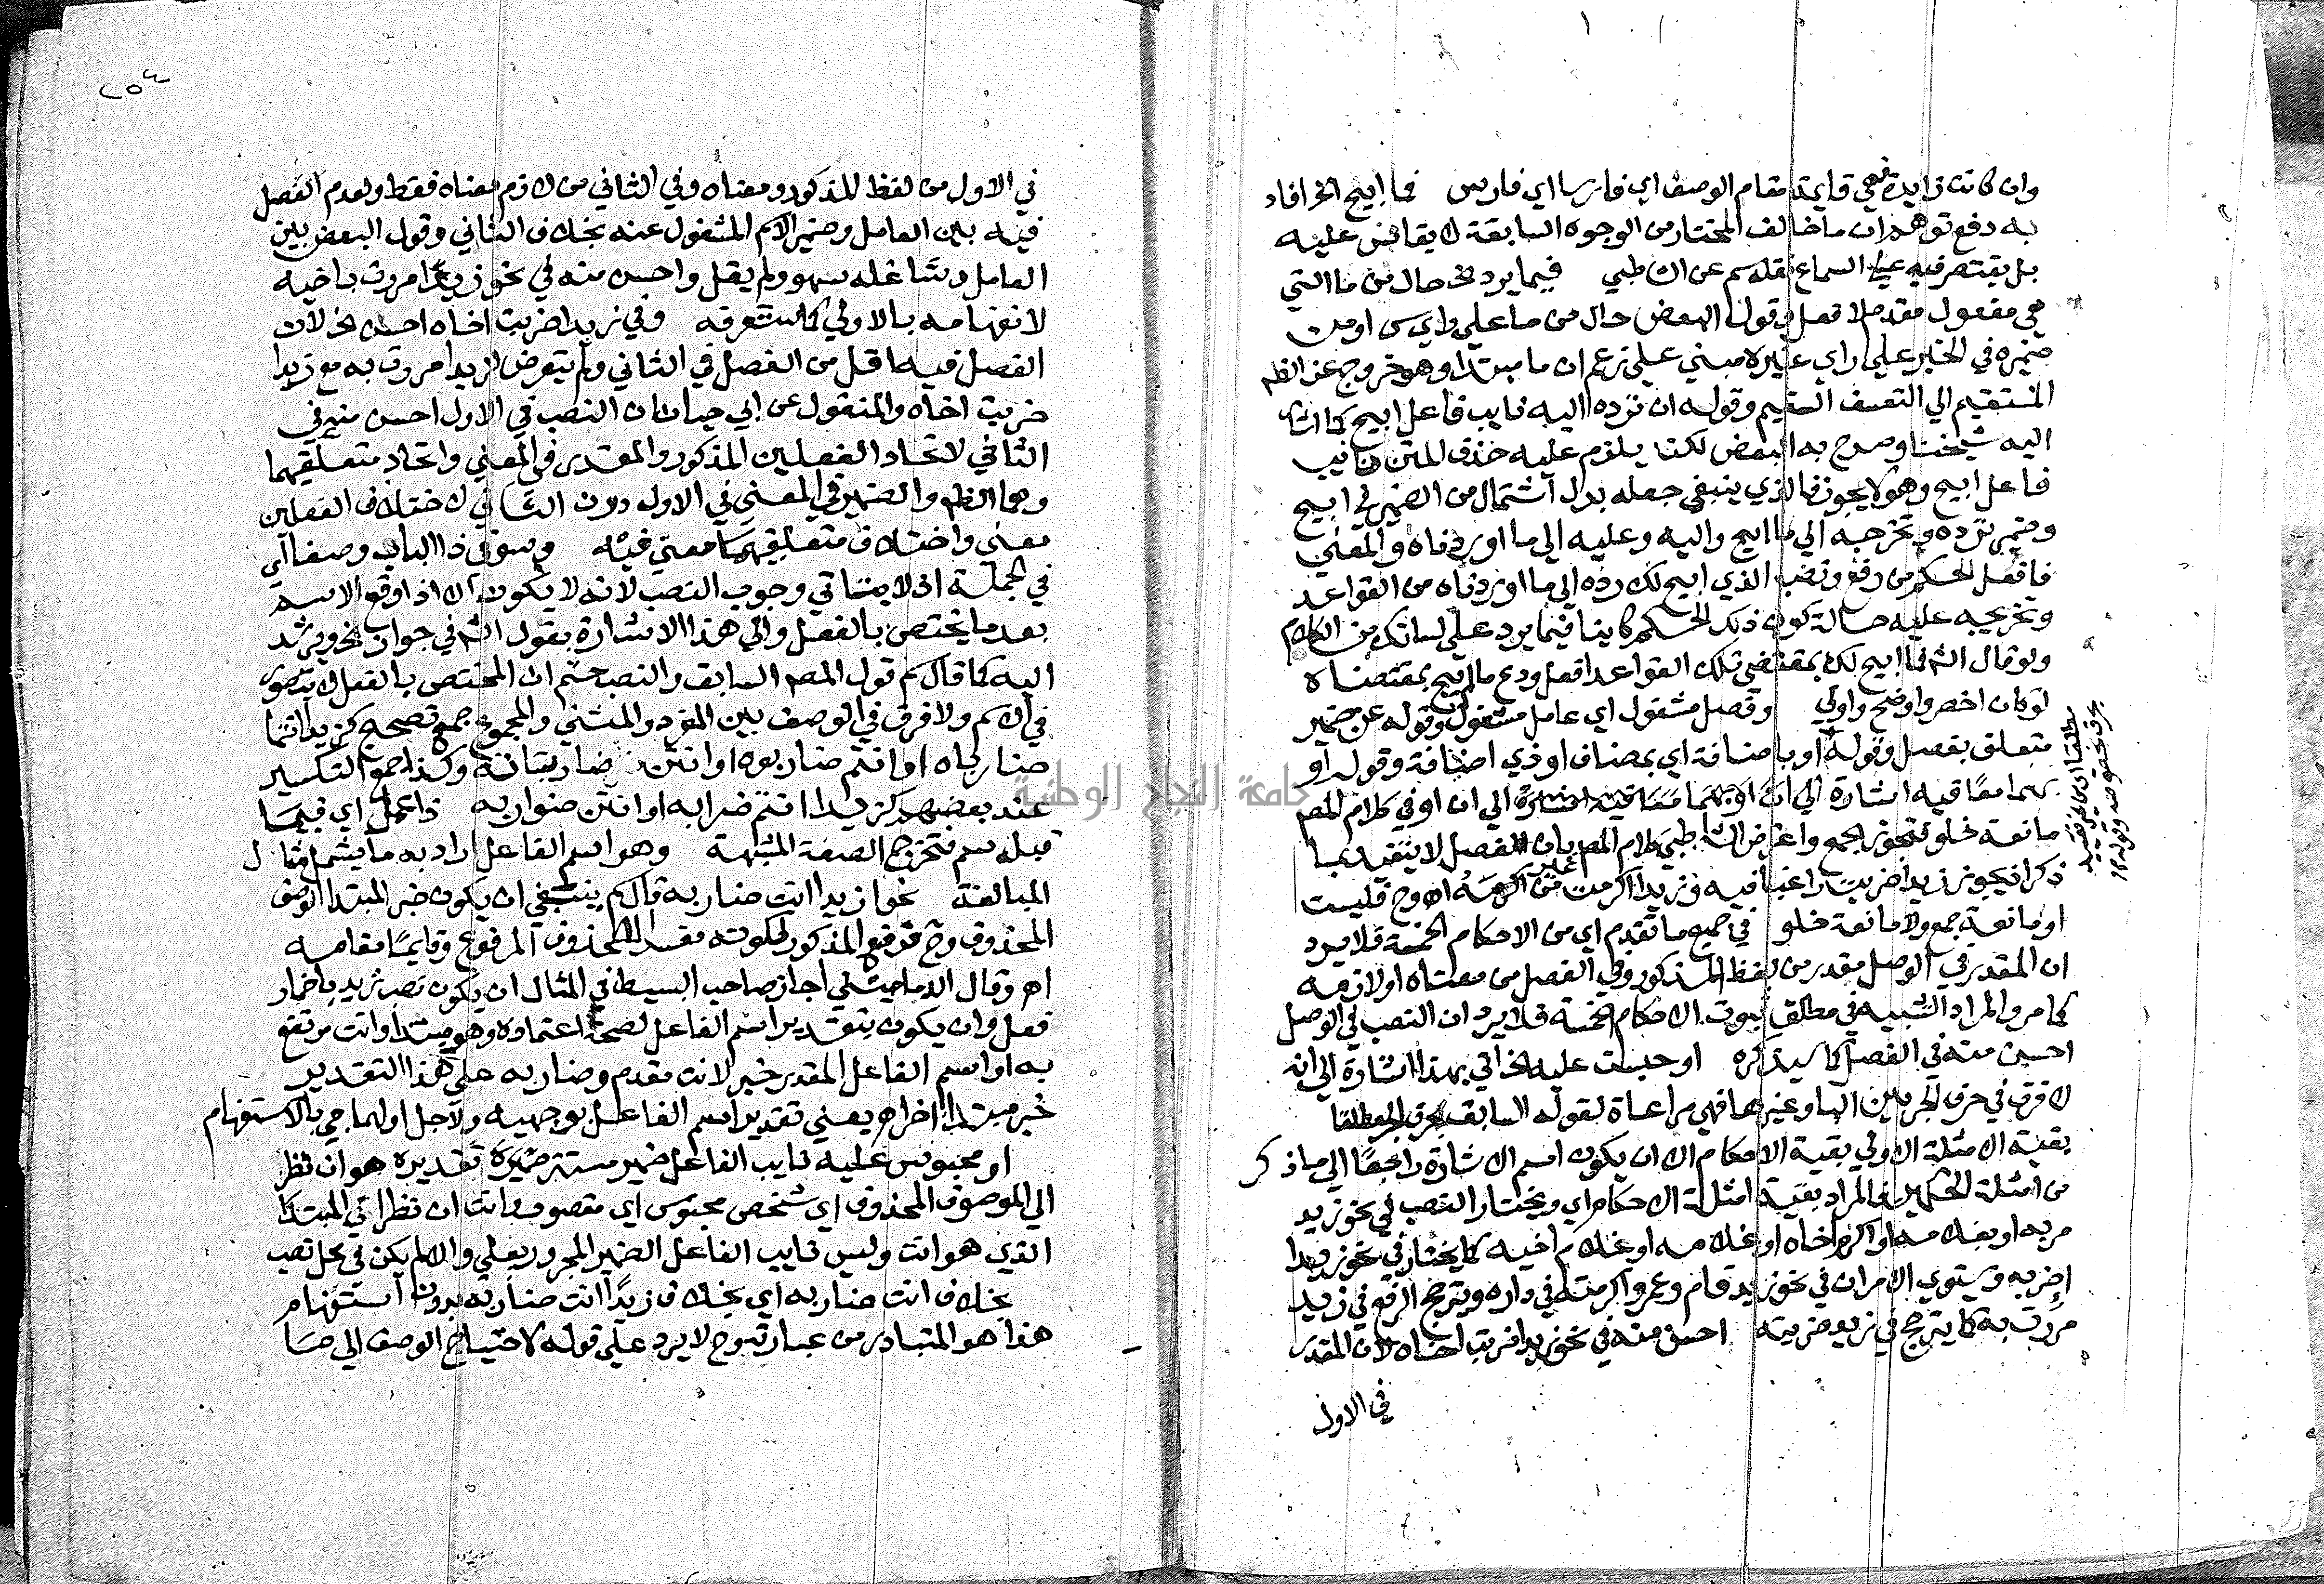 وان كانت زايدة فهي قايمة مقام الوصف اي فارسا اي فارس فما ابيح الخ افاد
به دفع توهم ان ما خالف المختار من الوجوه السابقة لا يقاس عليه
بل يقتصر فيه علي السماع نقله سم عن الشاطبي فيما يرد الخ حال من ما التي
هي مفعول مقدم لافعل وقول البعض حال من ما علي راي س او من
ضميره في الخبر علي راي غيره مبني علي زعم ان ما مبتدا وهو خروج عن الظم
المستقيم الي التعسف السقيم وقوله ان ترده اليه نايب فاعل ابيح كما اشار
اليه شيخنا وصرح به البعض لكنه يلزم عليه حذف المتن نايب
فاعل ابيح وهو لا يجوز فالذي ينبغي جعله بدل اشتمال من الضمير في ابيح
وضمير ترده وتخرجه الي ما ابيح واليه وعليه الي ما اوردناه والمعني
فافعل الحكم من رفع ونصب الذي ابيح لك رده الي ما اوردناه من القواعد
وتخريجه عليه حالة كون ذلك الحكم كاينا فيما يرد علي لسانك من الكلام
ولو قال الش فما ابيح لك بمقتضي تلك القواعد افعل ودع ما لم يبح بمقتضاه
لو كان اخصر واوضح واولي وفصل مشغول اي عامل مشغول وقوله عن ضمير
متعلق بفصل وقوله او باضافة اي بمضاف او ذي اضافة وقوله او
بهما معا فيه اشارة الي ان او في كلام المص
مانعة خلو فتجوز الجمع واعترض الشاطبي كلام المص بان الفصل لا يتقيد بما
ذكر اذ يجوز زيدا ضربت راغبا فيه وزيدا اكرمت من اكرمه اه وح فليست
او مانعة جمع ولا مانعة خلو في جميع ما تقدم اي من الاحكام الخمسة فلا يرد
ان المقدر في الوصل مقدر من لفظ المذكور وفي الفصل من معناه او لازمه
كما مر والمراد التشبيه في مطلق ثبوت الاحكام الخمسة فلا يرد ان النصب في الوصل
احسن منه في الفصل كما سيذكره او حبست عليه الخ اتي بهذا اشارة الي انه
لا فرق في حرف الجر بين الباء وغيرها فهي مراعاة لقوله السابق بحرف الجر مطلقا
بقية الامثلة الاولي بقية الاحكام الا ان يكون اسم الاشارة راجعا الي ما ذكر
من امثلة الحكمين فالمراد بقية امثلة الاحكام اي ويختار النصب في نحو زيد
مر به او بغلامه او اكرم اخاه او غلامه او غلام اخيه كما يختار في نحو زيدا
اضربه ويستوي الامران في نحو زيد قام وعمرو اكرمته في داره ويترجح الرفع في زيد
مررت به كما يترجح في زيد ضربته احسن منه في نحو زيدا ضربت اخاه لان المقدر
في الاول
٢٥٤
في الاول من لفظ المذكور ومعناه وفي الثاني من لازم معناه فقط ولعدم الفصل
فيه بين العامل وضمير الاسم المشغول عنه بخلاف الثاني وقول البعض بين
العامل وشاغله سهو ولم يقل واحسن منه في نحو زيدا مررت باخيه
لانفهامه بالاولي كما ستعرفه وفي زيدا ضربت اخاه احسن الخ لان
الفصل فيه اقل من الفصل في الثاني ولم يتعرض لزيدا مررت به مع زيدا
ضربت اخاه والمنقول عن ابي حيان ان النصب في الاول احسن منه في
الثاني لاتحاد الفعلين المذكور والمقدر في المعني واتحاد متعلقيهما
وهما الظم والضمير في المعني في الاول دون الثاني لاختلاف الفعلين
معني واختلاف متعلقيهما معني فيه وسو في ذا الباب وصفا اي
في الجملة اذ لا يتاتي وجوب النصب لانه لا يكون الا اذا وقع الاسم
بعد ما يختص بالفعل والي هذا الاشارة بقول الش في جواز نحو ويرشد
اليه كما قال سم قول المص السابق والنصب حتم ان المختص بالفعل لا يتصور
في الاسم ولا فرق في الوصف بين المفرد والمثني والمجموع جمع تصحيح كزيدا انتما
ضارباه او انتم ضاربوه او انتن ضارباته وكذا جمع التكسير
عند بعضهم كزيدا انتم ضرابه او انتن ضواربه ذا عمل اي فيما
قبله سم فتخرج الصفة المشبهة وهو اسم الفاعل اراد به ما يشمل مثال
المبالغة نحو ازيدا انت ضاربه قال سم ينبغي ان يكون خبر المبتدا الوصف
المحذوف وح فرفع المذكور لكونه مفسرا للمحذوف المرفوع وقايما مقامه
اه وقال الدماميني اجاز صاحب البسيط في المثال ان يكون نصب زيد باضمار
فعل وان يكون بتقدير اسم الفاعل لصحة اعتماده وهو مبتدا وانت مرتفع
به او اسم الفاعل المقدر خبر لانت مقدم وضاربه علي هذا التقدير
خبر مبتدا اخر اه يعني تقدير اسم الفاعل بوجهيه ولاجل اولهما جي بالاستفهام
او محبوس عليه نايب الفاعل ضمير مستتر ضميره تقديره هو ان نظر
الي الموصوف المحذوف اي شخص محبوس اي مقصور وانت ان نظر الي المبتدا
الذي هو انت وليس نايب الفاعل الضمير المجرور بعلي والا لم يكن في محل نصب
بخلاف انت ضاربه اي بخلاف زيدا انت ضاربه بدون استفهام
هذا هو المتبادر من عبارته وح لا يرد علي قوله لاحتياج الوصف الي ما
جامعة النجاح الوطنية